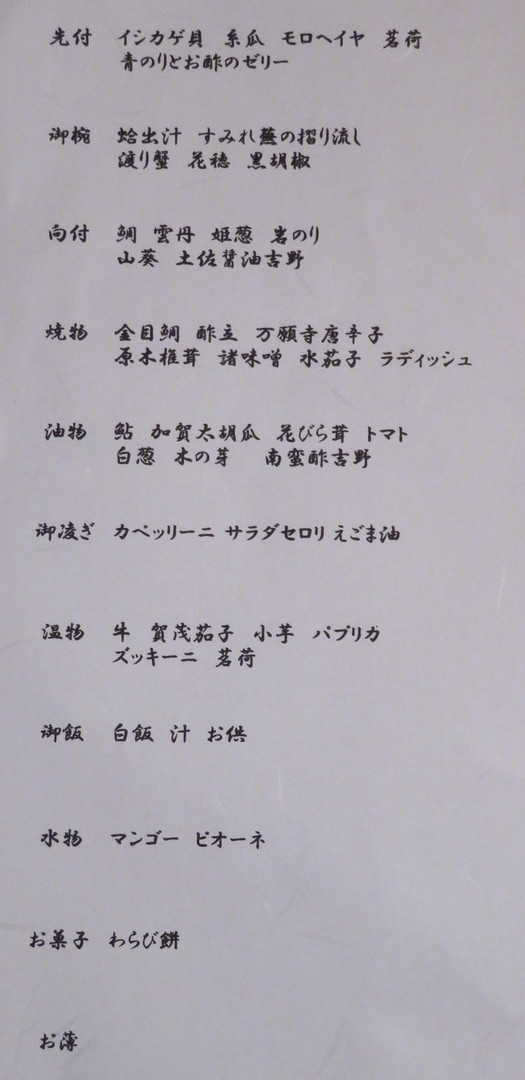 先付 イシカゲ貝 糸瓜 モロヘイヤ 茗荷
青のりとお酢のゼリー
御椀 蛤出汁 すみれ蕪の摺り流し
渡り蟹 花穂 黒胡椒
向付 鯛 雲丹 姫葱 岩のり
山葵 土佐醤油吉野
焼物 金目鯛 酢立 万願寺唐辛子
原木椎茸 諸味噌 水茄子 ラディッシュ
油物 鮎 加賀太胡瓜 花びら茸 トマト
白葱 木の芽 南蛮酢吉野
御凌ぎ カペッリーニ サラダセロリ えごま油
温物 牛 賀茂茄子 小芋 パプリカ
ズッキーニ 茗荷
御飯 白飯 汁 お供
水物 マンゴー ピオーネ
お菓子 わらび餅
お薄